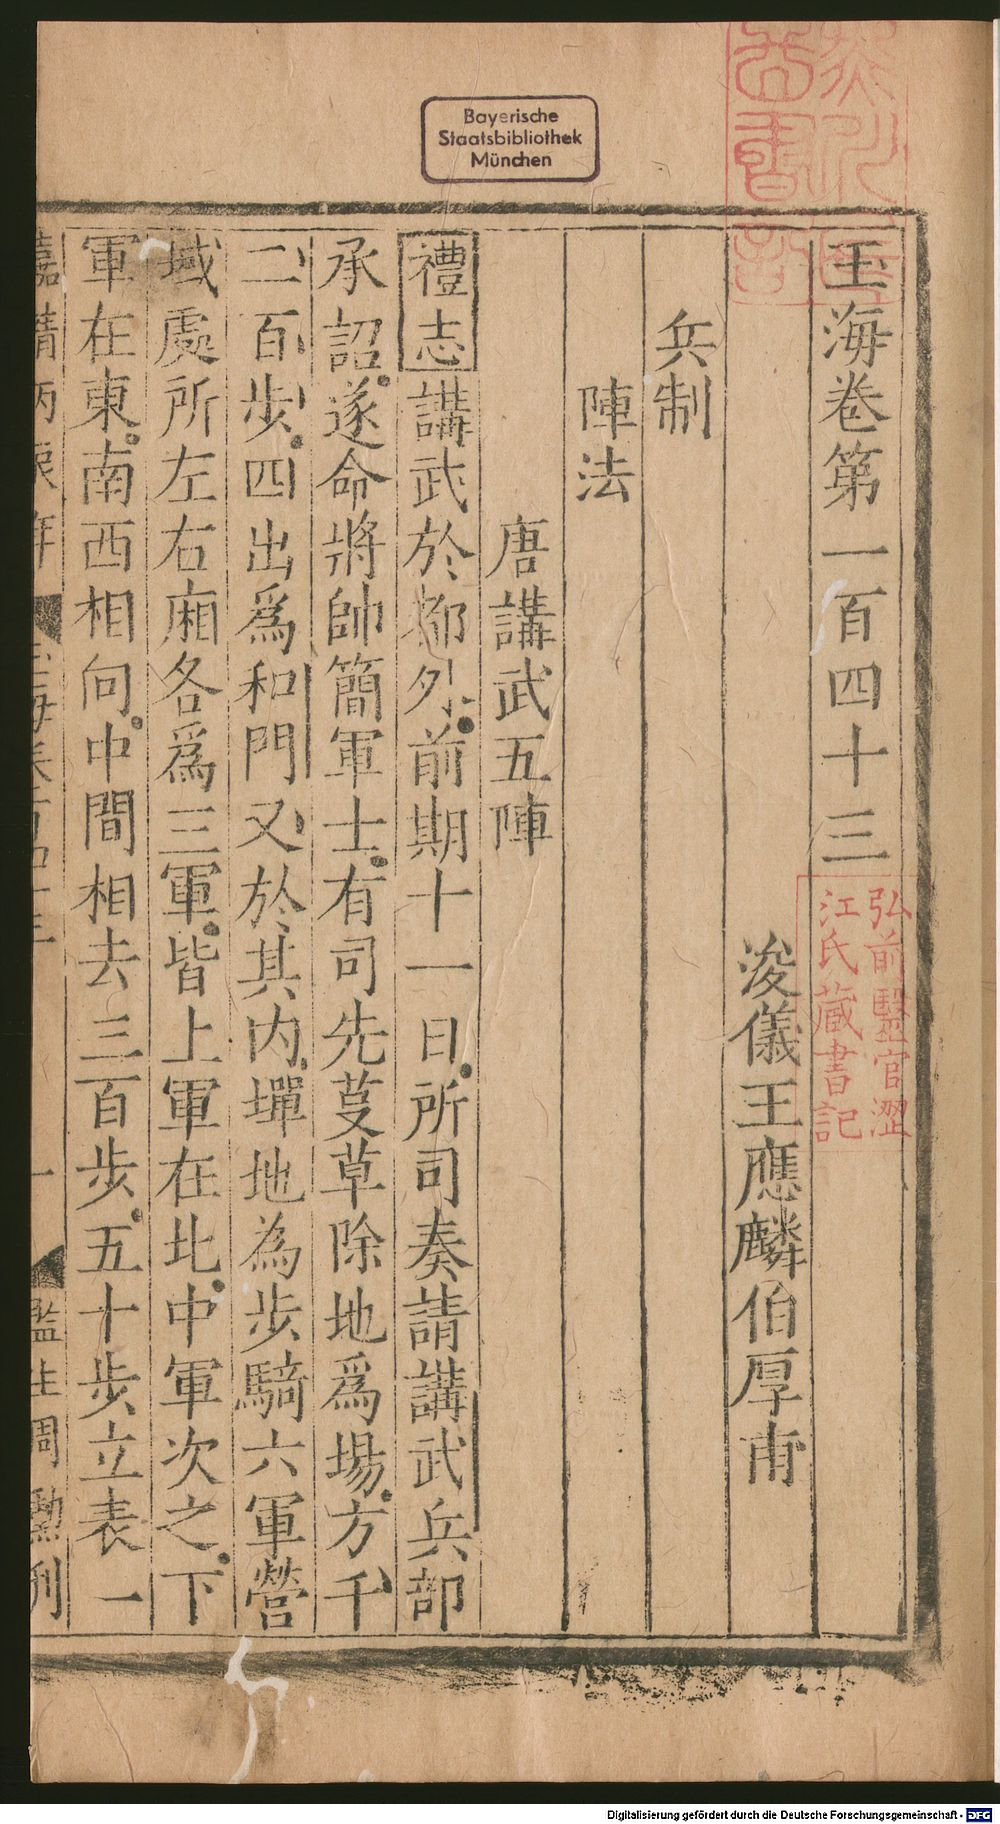 玉海卷第一百四十三
浚儀王應麟伯厚甫
兵制
陣法
唐講武五陣
禮志講武於都外前期十一日所司奏請講武兵部
承詔遂命將帥簡軍士有司先芟草除地爲場方千
二百步四出爲和門又於其内墠地為步騎六軍營
域處所左右廂各爲三軍皆上軍在北中軍次之下
軍在東南西相向中間相去三百步五十步立表一
嘉靖丙辰年
玉海卷百四十三
一
監生周勳刊
弘前醫官澀
江氏藏書記
Bayerische
Staatsbibliothek
München
Digitalisierung gefördert durch die Deutsche Forschungsgemeinschaft - DFG